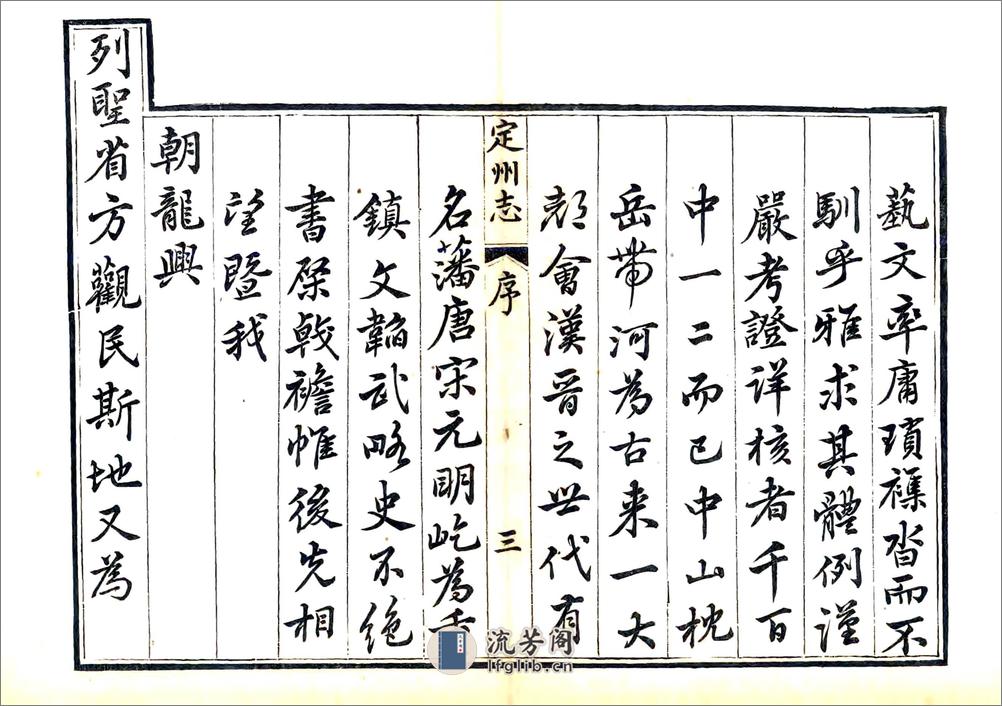 藝文率庸瑣襍沓而不
馴乎雅求其體例謹
嚴考證詳核者千百
中一二而已中山枕
岳帶河為古来一大
都會漢晉之世代有
定州志
序
三
名藩唐宋元明屹為重
鎮文韜武略史不絶
書棨戟襜帷後先相
望暨我
朝龍興
列聖省方觀民斯地又為
流芳阁
lfglib.cn